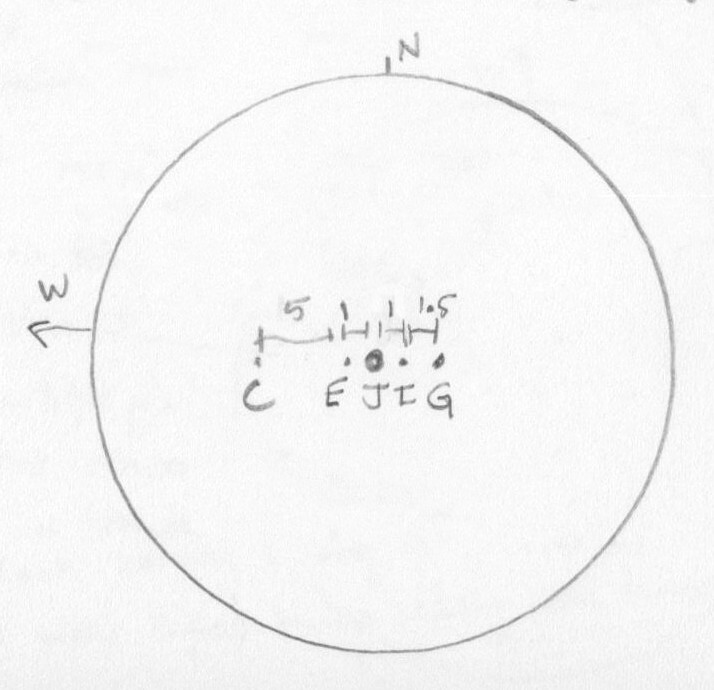 N
W
5 1 1 1.5
C E J I G